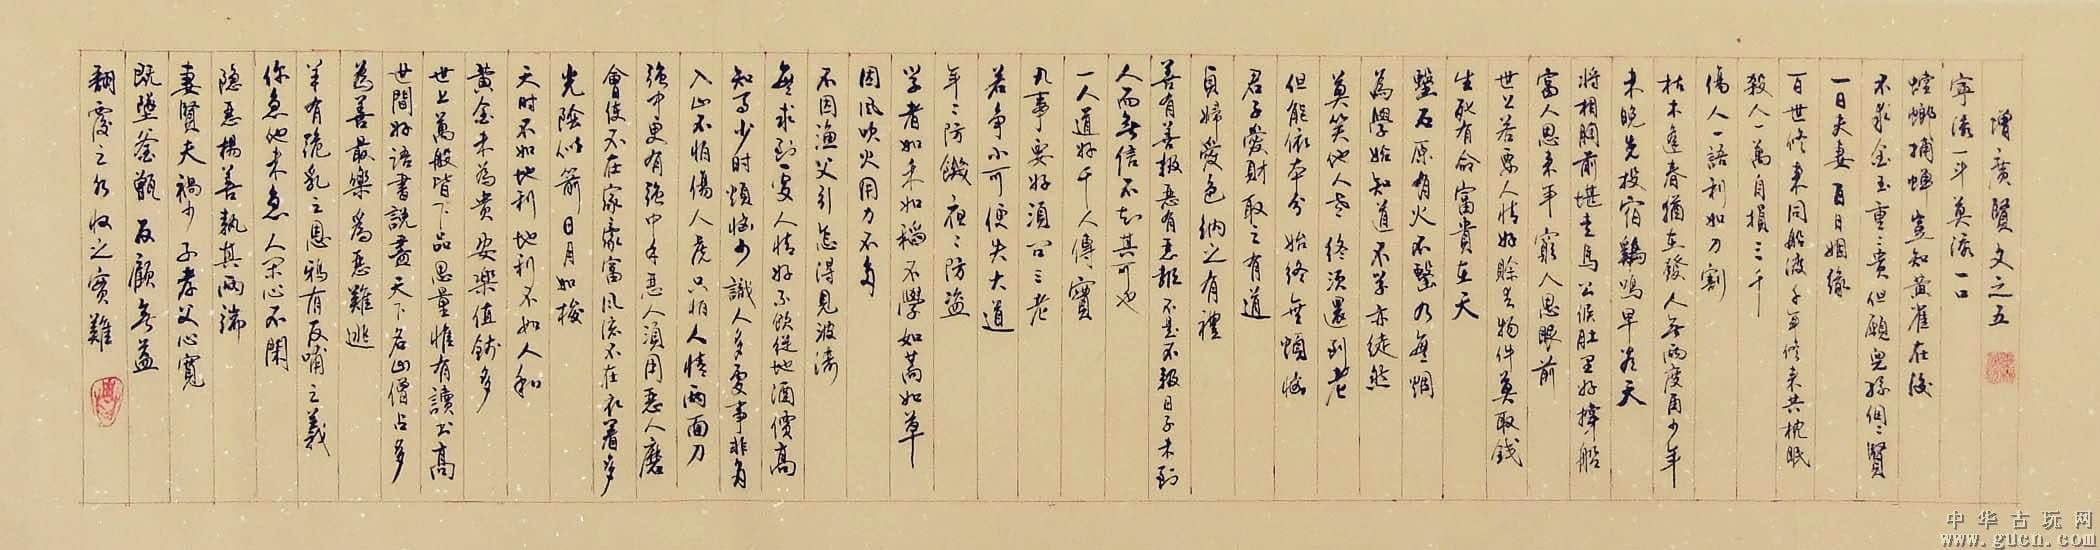 增廣賢文之五
寧添一斗莫添一口
螳螂捕蟬豈知黃雀在後
不求金玉重重贵但願兒孫個個賢
一日夫妻百日姻緣
百世修来同船渡千年修来共枕眠
殺人一萬自損三千
傷人一語利如刀割
枯木逢春猶在發人無兩度再少年
未晚先投宿鷄鳴早看天
將相胸前堪走馬公侯肚里好撐船
富人思来年窮人思眼前
世上若要人情好賒去物件莫取錢
生死有命富貴在天
擊石原有火不擊乃無烟
為學始知道不学亦徒然
莫笑他人老終須還到老
但能依本分始終無煩惱
君子愛財取之有道
貞婦愛色納之有禮
善有善報惡有惡報不是不報日子未到
人而無信不知其可也
一人道好千人傳實
凡事要好須问三老
若争小可便失大道
年年防饑夜夜防盗
学者如禾如稻不學如蒿如草
因風吹火用力不多
不因漁父引怎得見波涛
無求到處人情好不飲從他酒價高
知事少时煩惱少識人多處事非多
入山不怕傷人虎只怕人情兩面刀
强中更有强中手惡人須用惡人磨
會使不在家豪富風流不在衣着多
光陰似箭日月如梭
天时不如地利地利不如人和
黄金未為贵安樂值錢多
世上萬般皆下品思量惟有讀书高
世間好語書説盡天下名山僧占多
為善最樂為惡難逃
羊有跪乳之恩鴉有反哺之義
你急他未急人閑心不閑
隐惡揚善執其兩端
妻賢夫禍少子孝父心寬
既墜釜甑反顧無益
翻覆之水收之實難
中华古玩网
www.gucn.com